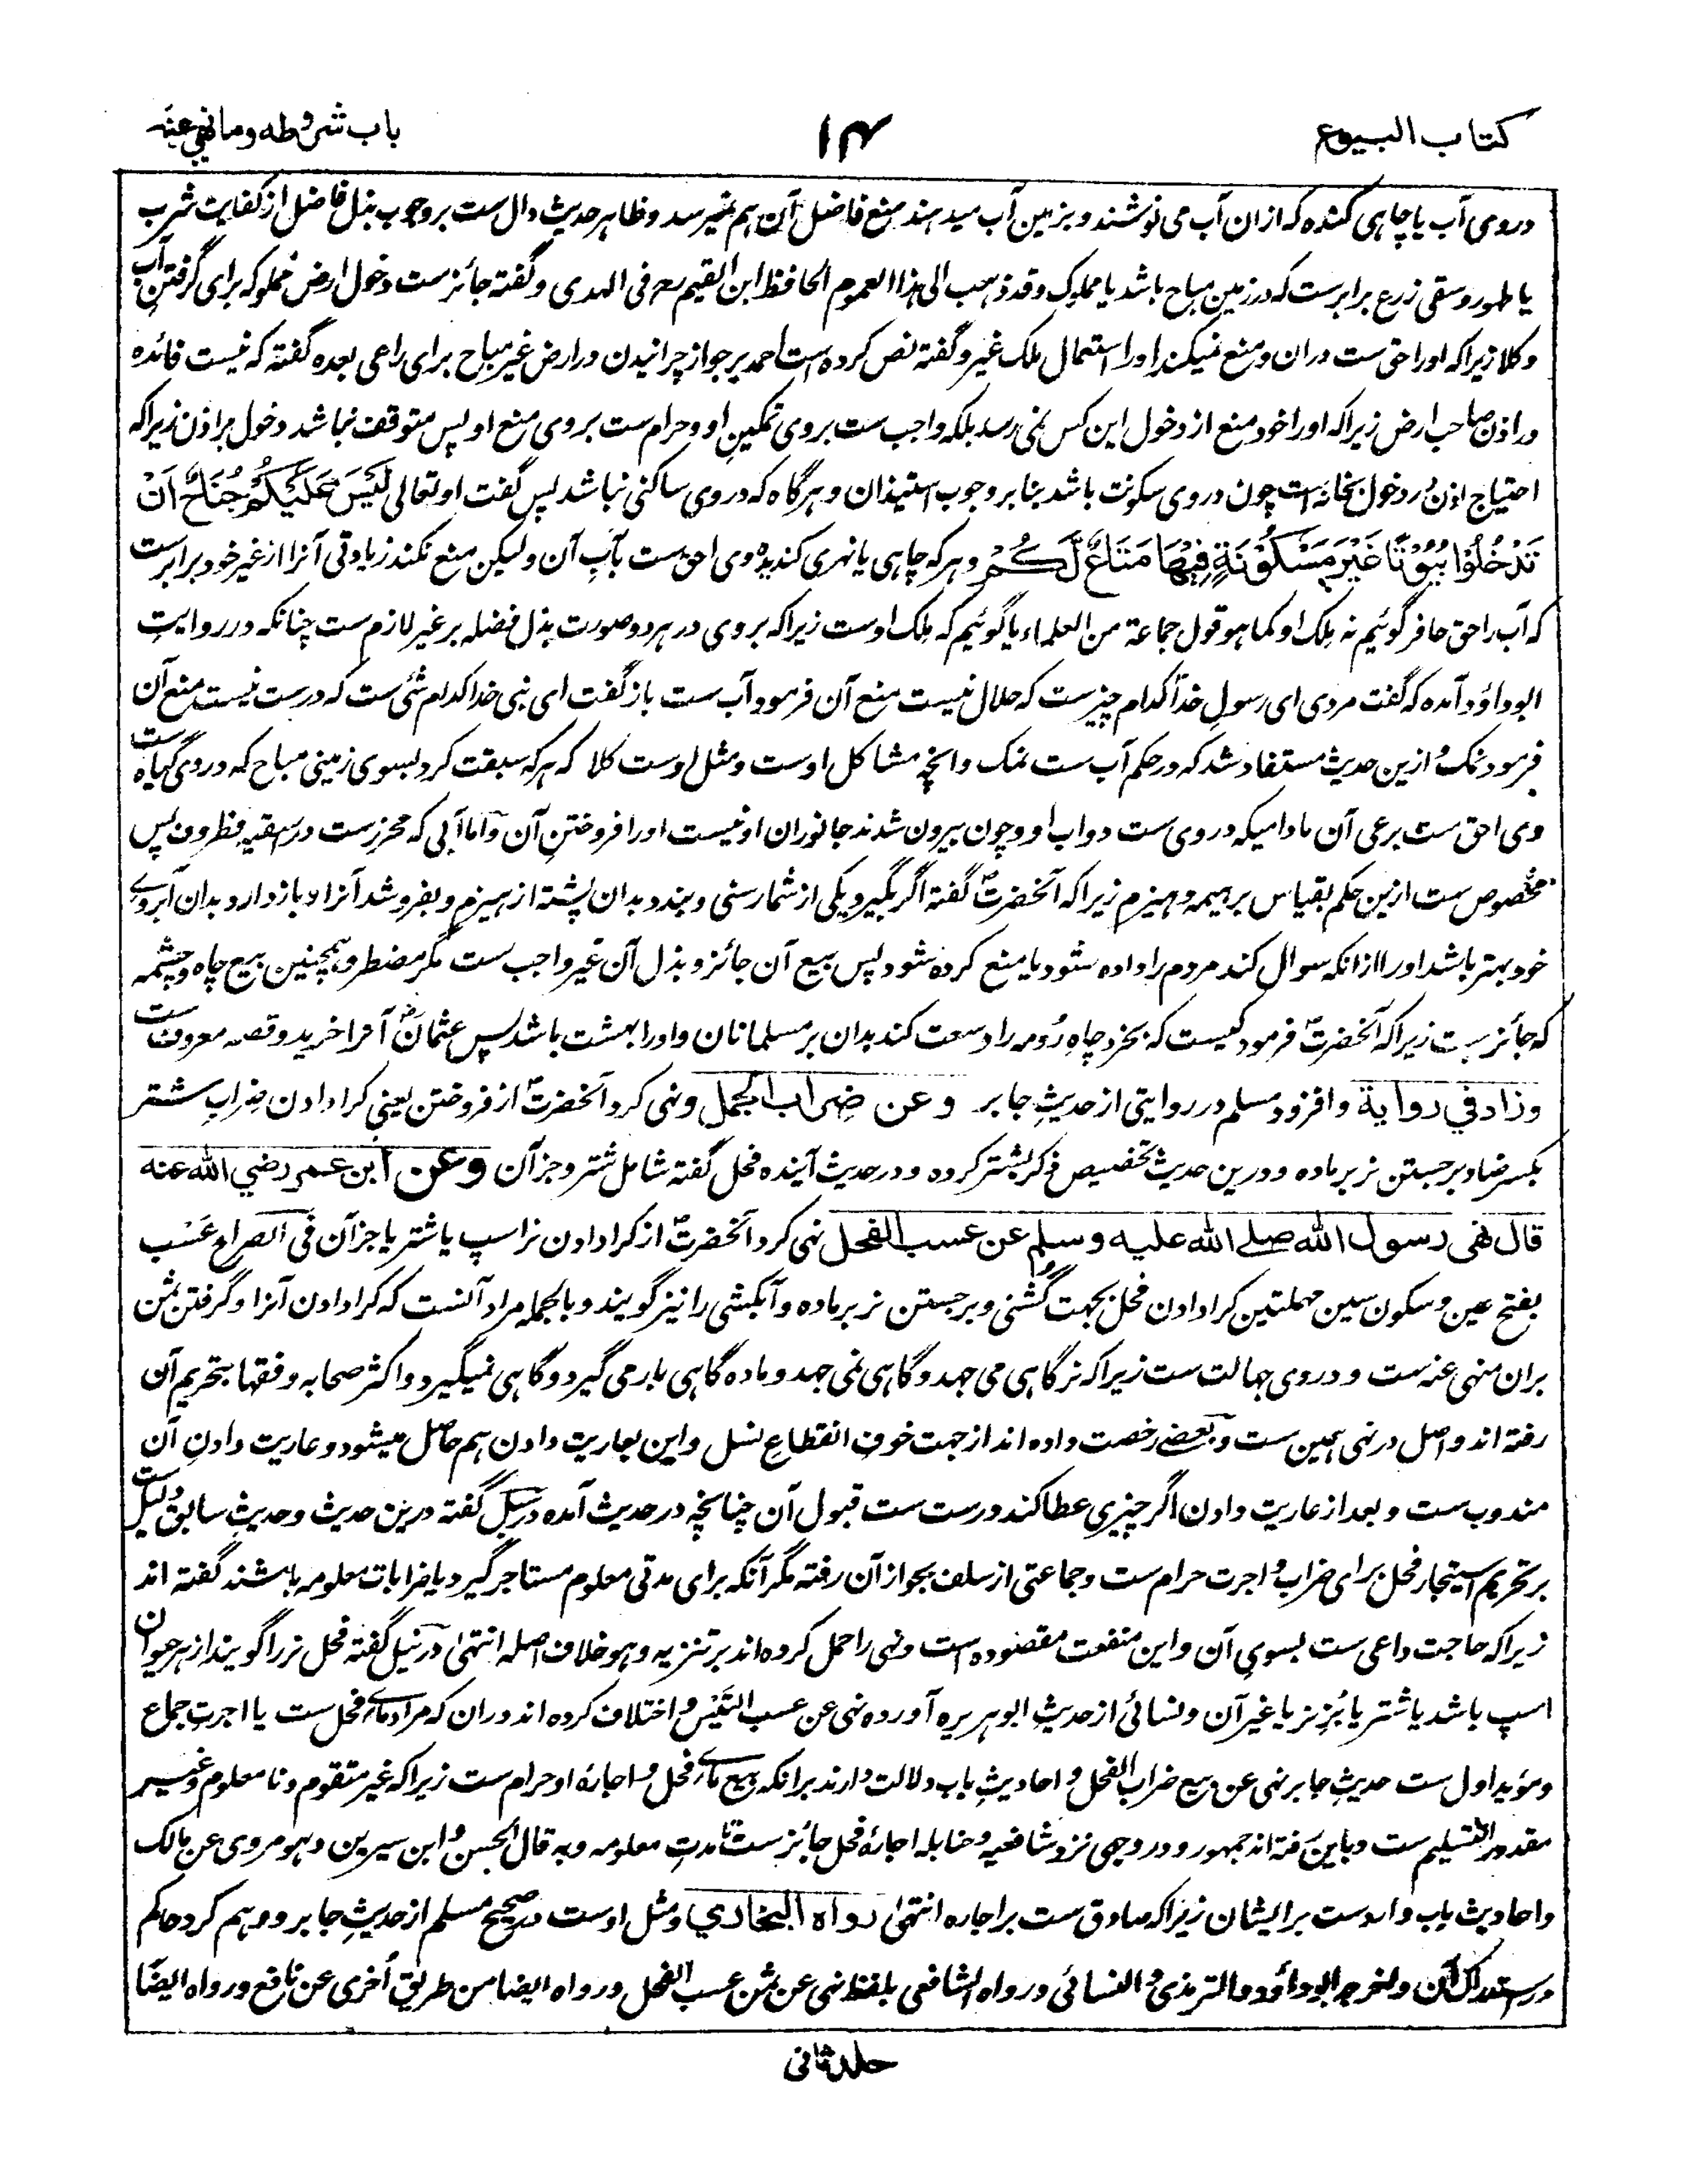 کتاب البیوع
۱۴
باب شروطه وما نهي عنه
در وی آب یا چاهی کنده که ازان آب می نوشند و بزمین آب میدهند منع فاضل آن هم نمیرسد و ظاهر حدیث دال ست بر وجوب بذل فاضل از کفایت شرب
یا طهور و سقی زرع برابرست که در زمین مباح باشد یا مملوک وقد ذهب الی هذا العموم الحافظ ابن القیم رح فی الهدی و گفته جائزست دخول ارض مملوکه برای گرفتن آب
و کلا زیراکه او را حق ست دران و منع نمیکند او را استعمال ملک غیر و گفته نص کرده است احمد بر جواز چرانیدن در ارض غیر مباح برای راعی بعده گفته که نیست فائده
در اذن صاحب ارض زیراکه او را خود منع از دخول این کس نمی رسد بلکه واجب ست بروی تمکین او و حرام ست بروی منع او پس متوقف نباشد دخول بر اذن زیراکه
احتیاج اذن در دخول بخانه است چون در وی سکونت باشد بنابر وجوب استیذان و هرگاه که در وی ساکنی نباشد پس گفت او تعالی لَیْسَ عَلَیْکُمْ جُنَاحٌ اَنْ
تَدْخُلُوْا بُیُوْتًا غَیْرَ مَسْکُوْنَةٍ فِیْهَا مَتَاعٌ لَّکُمْ و هر که چاهی یا نهری کندیده وی احق ست بآبِ آن ولیکن منع نکند زیادتی آنرا از غیر خود برابرست
که آب را حق حافر گوئیم نه ملک او کما هو قول جماعة من العلماء یا گوئیم که ملک اوست زیراکه بروی در هر دو صورت بذل فضله بر غیر لازم ست چنانکه در روایتِ
ابوداؤد آمده که گفت مردی ای رسول خدا کدام چیزست که حلال نیست منع آن فرمود آب ست باز گفت ای نبی خدا کدام شئ ست که درست نیست منع آن
فرمود نمک و ازین حدیث مستفاد شد که در حکم آب ست نمک و انچه مشاکل اوست و مثل اوست کلا که هر که سبقت کرد بسوی زمینی مباح که در وی گیاه ست
وی احق ست برعی آن مادامیکه در وی ست دواب او و چون بیرون شدند جانوران او نیست او را فروختن آن و اما آبی که محرزست در سقیه و ظروف پس
مخصوص ست ازین حکم بقیاس بر هیمه و هیزم زیراکه آنحضرتؐ گفته اگر بگیرد یکی از شما رسنی و بندد بدان پشته از هیزم و بفروشد آنرا و باز دارد بدان آبروے
خود بهتر باشد او را ازانکه سوال کند مردم را داده شود یا منع کرده شود پس بیع آن جائز و بذل آن غیر واجب ست مگر مضطر و همچنین بیع چاه و چشمه
که جائز ست زیراکه آنحضرتؐ فرمود کیست که بخرد چاهِ رُومه را وسعت کند بدان بر مسلمانان و او را بهشت باشد پس عثمانؓ آنرا خرید و قصه معروف ست
وزاد في رواية و افزود مسلم در روایتی از حدیثِ جابر وعن ضراب الجمل و نهی کرد آنحضرتؐ از فروختن یعنی کرا دادن ضراب شتر
بکسر ضاد برجستن نر بر ماده و درین حدیث تخصیص ذکر بشتر کرده و در حدیث آینده فحل گفته شامل شتر و جز آن وعن ابن عمر رضي الله عنه
قال نهى رسول الله صلے الله علیه وسلم عن عسب الفحل نهی کرد آنحضرتؐ از کرا دادن نر اسپ یا شتر یا جز آن فی الصراح عَسْب
بفتح عین و سکون سین مهملتین کرا دادن فحل بجهت گشنی و برجستن نر بر ماده و آبکشی را نیز گویند و بالجمله مراد آنست که کرا دادن آنرا و گرفتن ثمن
بران منهی عنه ست و در وی جهالت ست زیراکه نر گاهی می جهد و گاهی نمی جهد و ماده گاهی بار می گیرد و گاهی نمیگیرد و اکثر صحابه و فقها بتحریم آن
رفته اند و اصل در نهی همین ست و بعضے رخصت داده اند از جهت خوف انقطاعِ نسل و این بعاریت دادن هم حاصل میشود و عاریت دادن آن
مندوب ست و بعد از عاریت دادن اگر چیزی عطا کند درست ست قبول آن چنانچه در حدیث آمده در سبل گفته درین حدیث و حدیثِ سابق دلیل ست
بر تحریم استیجار فحل برای ضراب و اجرت حرام ست و جماعتی از سلف بجواز آن رفته مگر آنکه برای مدتی معلوم مستاجر گیرد یا ضرابات معلومه باشند گفته اند
زیراکه حاجت داعی ست بسوی آن و این منفعت مقصوده است و نهی را حمل کرده اند بر تنزیه و هو خلاف اصله انتهیٰ در نیل گفته فحل نر را گویند از هر حیوان
اسپ باشد یا شتر یا بُزِ نر یا غیر آن و نسائی از حدیثِ ابو هریره آورده نهی عن عسب التَّیْس و اختلاف کرده اند دران که مراد ماے فحل ست یا اجرت جماع
و مؤید اول ست حدیثِ جابر نهی عن بیع ضراب الفحل و احادیثِ باب دلالت دارند برانکه بیع ماے فحل و اجارهٔ او حرام ست زیراکه غیر متقوم و نا معلوم و غیر
مقدور التسلیم ست و باین رفته اند جمهور و در وجهی نزد شافعیه و حنابله اجارهٔ فحل جائزست تا مدتِ معلومه و به قال الحسن و ابن سیرین و هو مروی عن مالک
و احادیثِ باب واردست بر ایشان زیراکه صادق ست بر اجاره انتهیٰ رواه البخاري و مثل اوست در صحیح مسلم از حدیثِ جابر و وهم کرد حاکم
در استدراک آن و اخرجه ابوداؤد و الترمذی و النسائی و رواه الشافعی بلفظ نهی عن ثمن عسب الفحل و رواه ایضا من طریقٍ اُخری عن نافع و رواه ایضًا
جلد ثانی